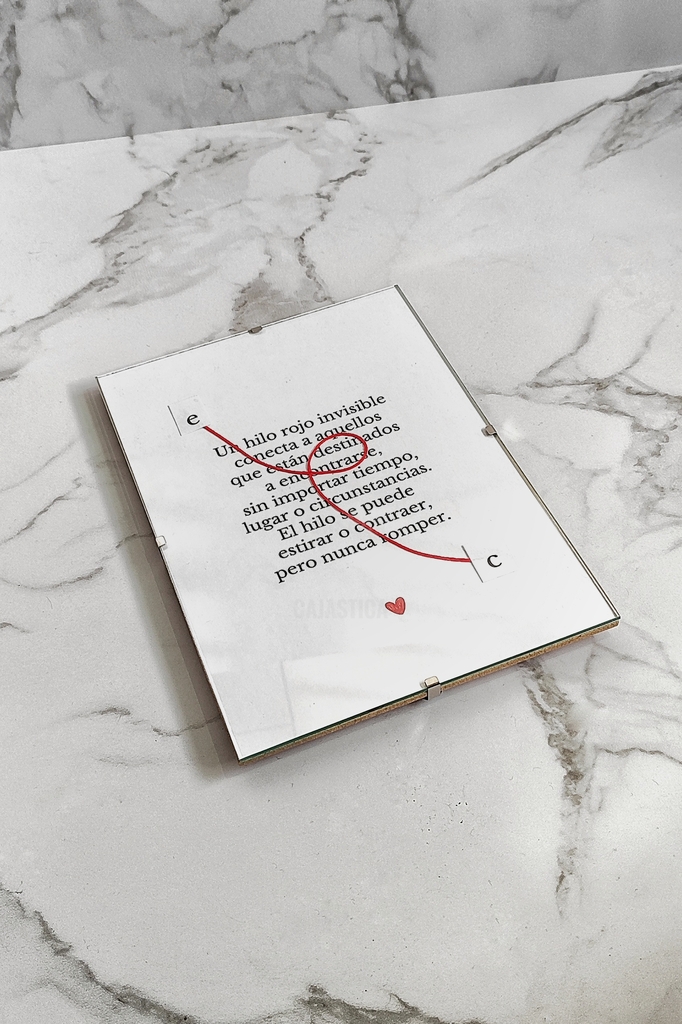 e
Un hilo rojo invisible
conecta a aquellos
que están destinados
a encontrarse,
sin importar tiempo,
lugar o circunstancias.
El hilo se puede
estirar o contraer,
pero nunca romper.
c